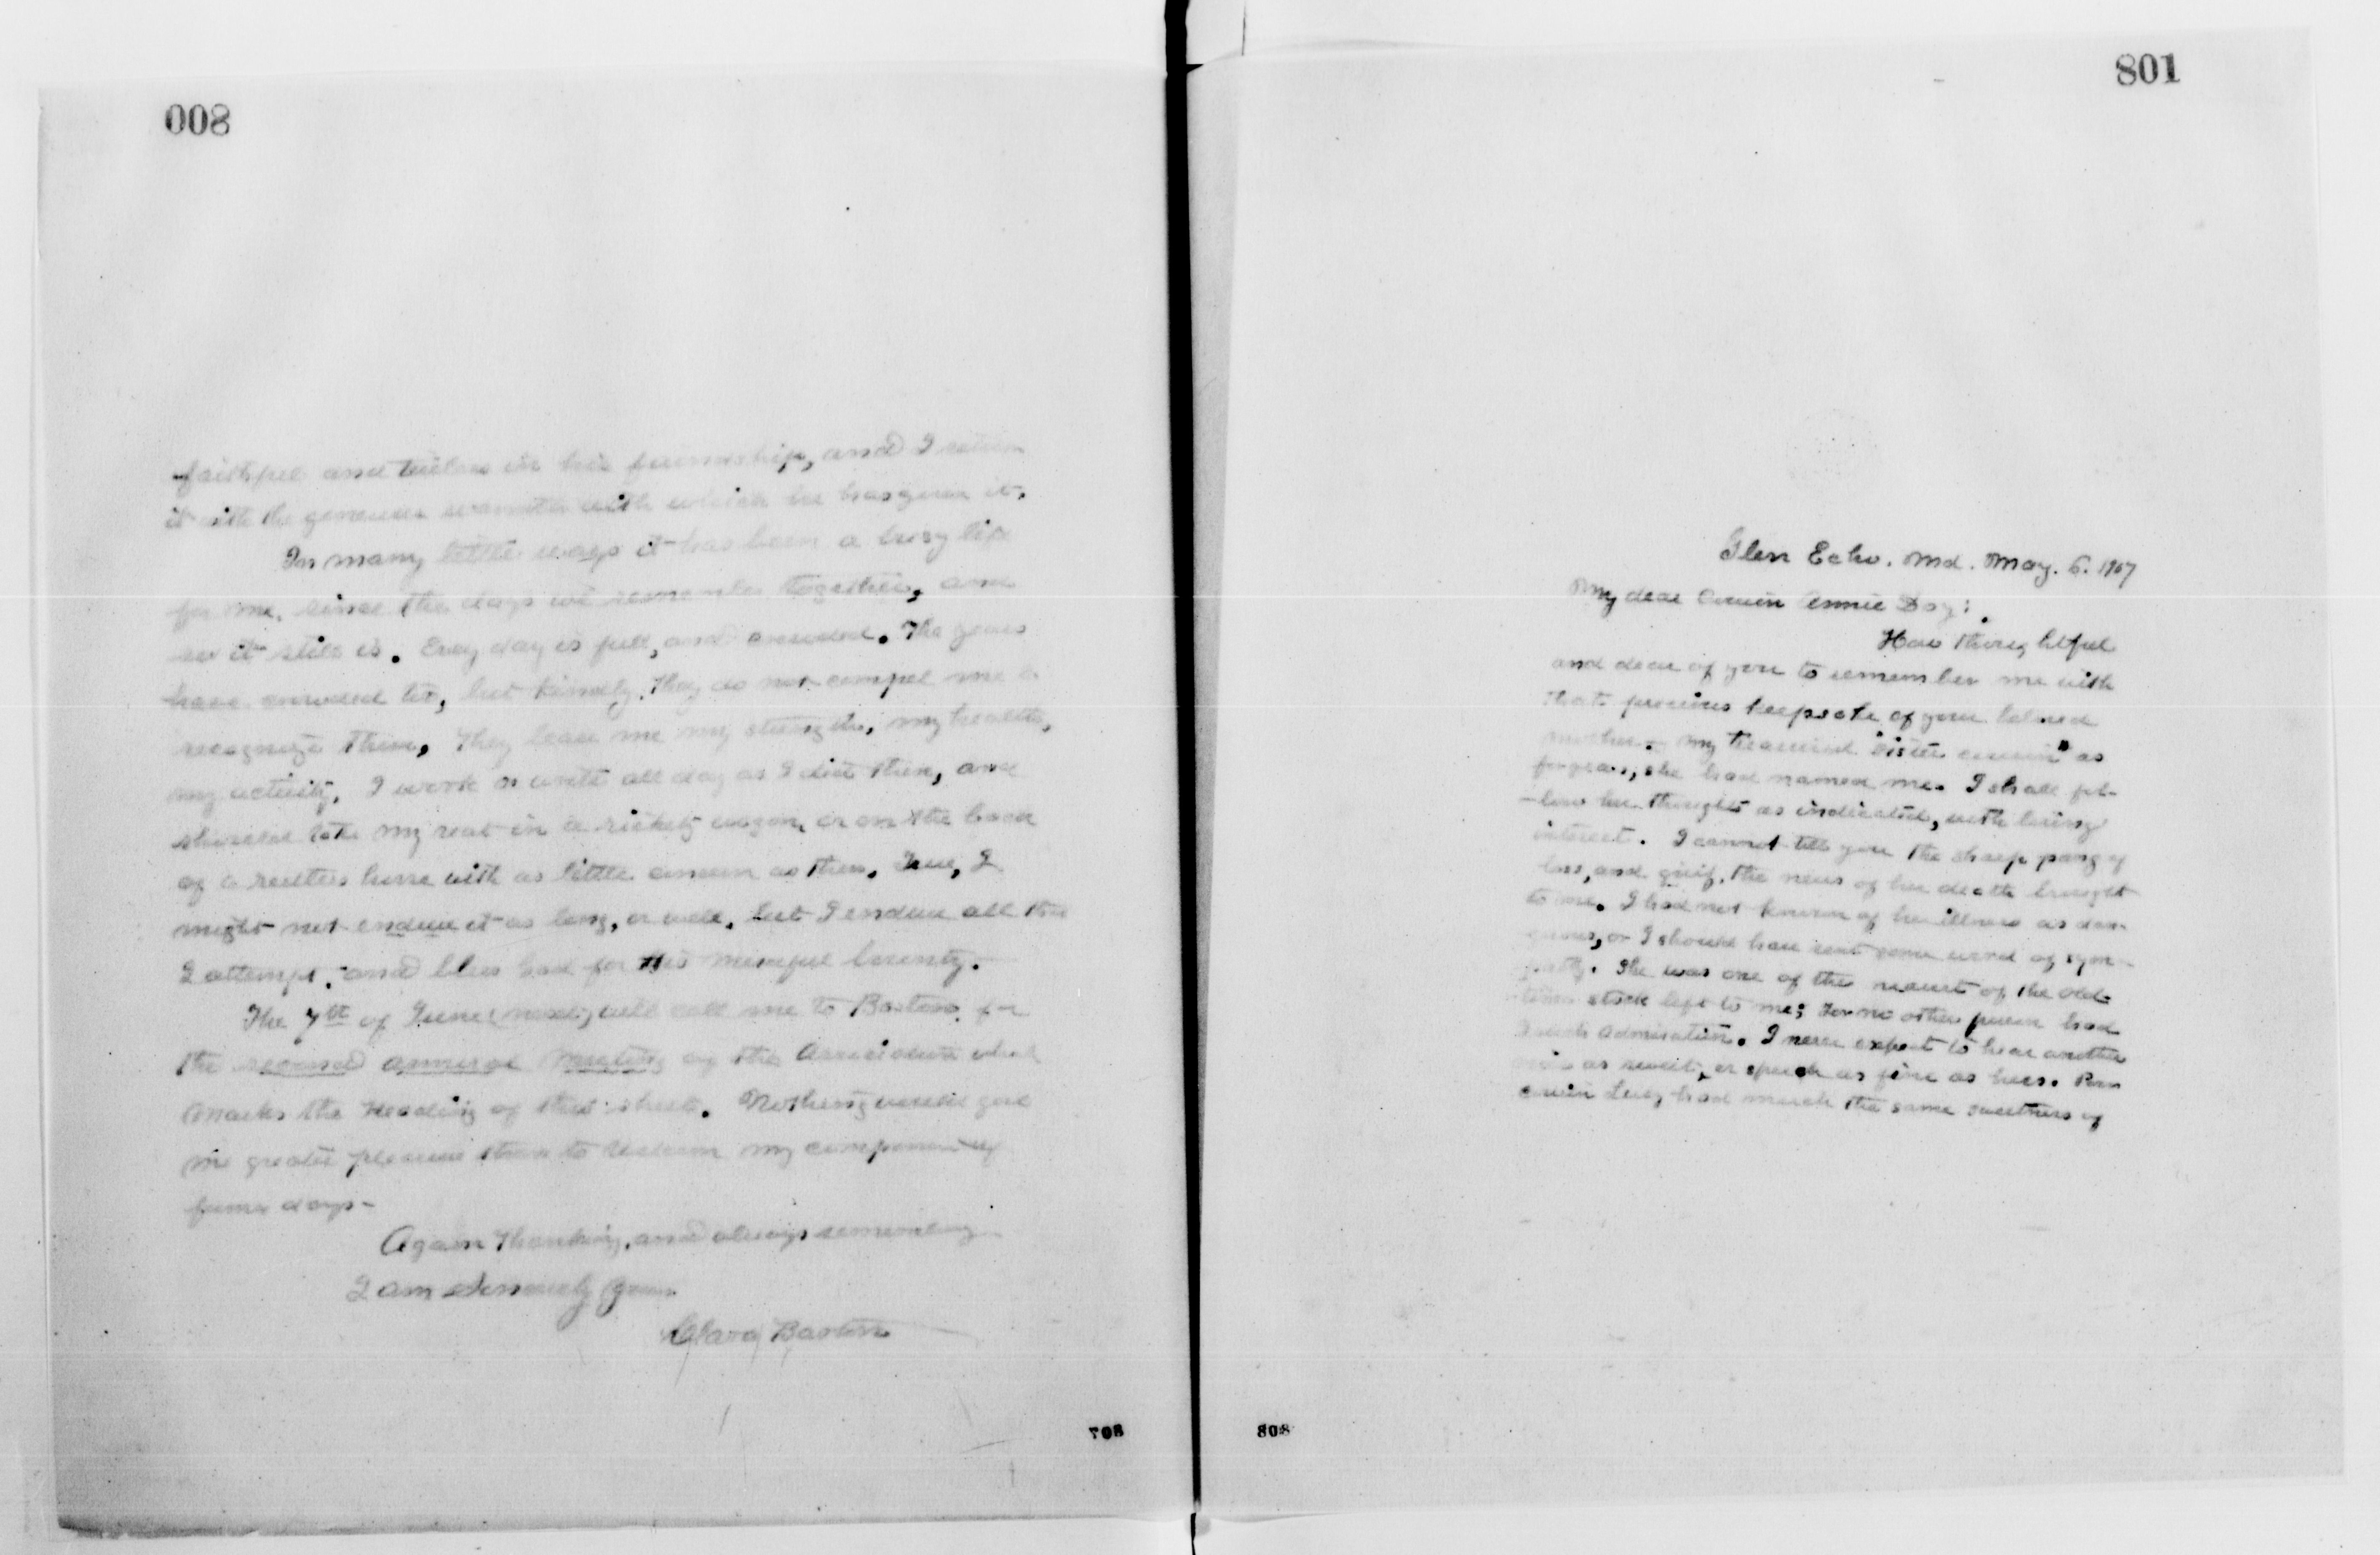 008
faithful and true in his friendship, and I return
it with the generous warmth with which he has given it.
In many little ways it has been a busy life
for me, since the days we remember together, and
so it still is. Every day is full, and crowded. The years
have crowded too, but kindly. They do not compel me to
recognize them, They leave me my strength, my health,
my activity, I work or write all day as I did then, and
should take my seat in a rickety wagon, or on the back
of a restless horse with as little concern as then. True, I
might not endure it as long, or well, but I endure all that
I attempt, and bless God for his merciful bounty.
The 7th of June (next) will call me to Boston for
the second annual meeting of the Association which
marks the heading of this sheet. Nothing would give
me greater pleasure than to welcome my companion of
former days-
Again thanking, and always remembering
I am sincerely yours
Clara Barton
798
801
Glen Echo. Md. May. 6. 1907
My dear Cousin Annie Day:
How thoughtful
and dear of you to remember me with
that precious keepsake of your beloved
mother. - my treasured "sister cousin" as
for years, she had named me. I shall fol-
-low her thoughts as indicated, with loving
interest. I cannot tell you the sharp pang of
loss, and grief, the news of her death brought
to me. I had not known of her illness as dan-
gerous, or I should have sent some word of sym-
pathy. She was one of the nearest of the old-
time stock left to me; for no other person had
I such admiration. I never expect to hear another
voice as sweet, or speech as fine as hers.
cousin Lucy had much the same sweetness of
808